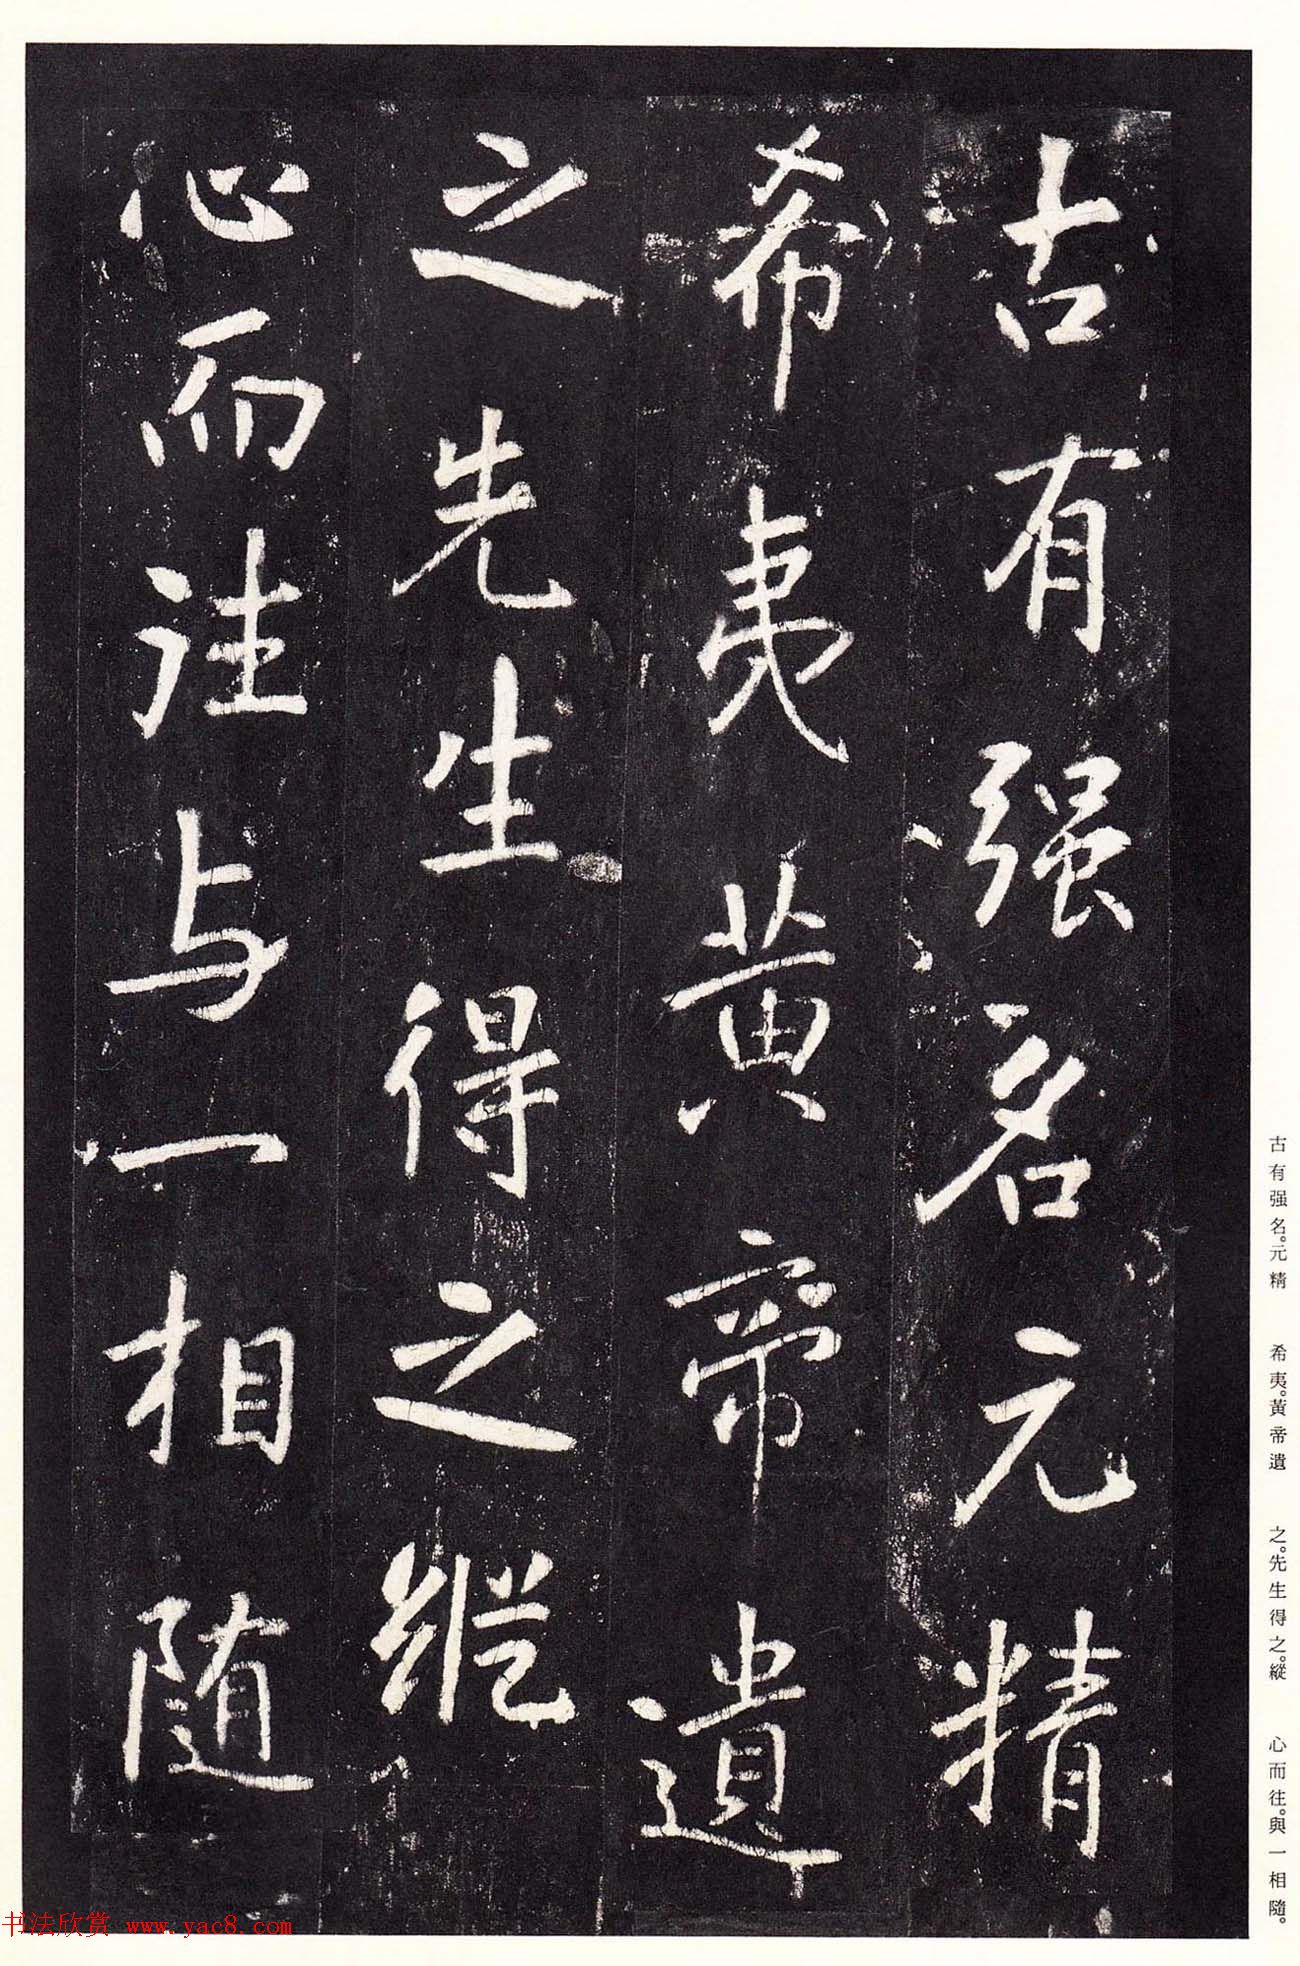 古有强名元精
希夷黄帝遺
之先生得之縱
心而往与一相随
古有强名。元精　希夷。黃帝遺　之。先生得之。縱　心而往。與一相隨。
书法欣赏 www.yac8.com